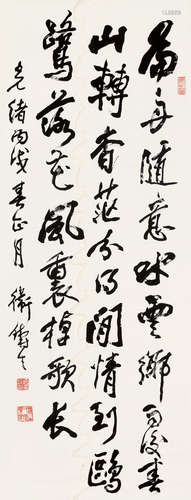 扁舟隨意水雲鄉雨後春
山轉杳茫分得閒情到鷗
鷺落花風裏棹歌長
光緒丙戌春正月 衛鑄生